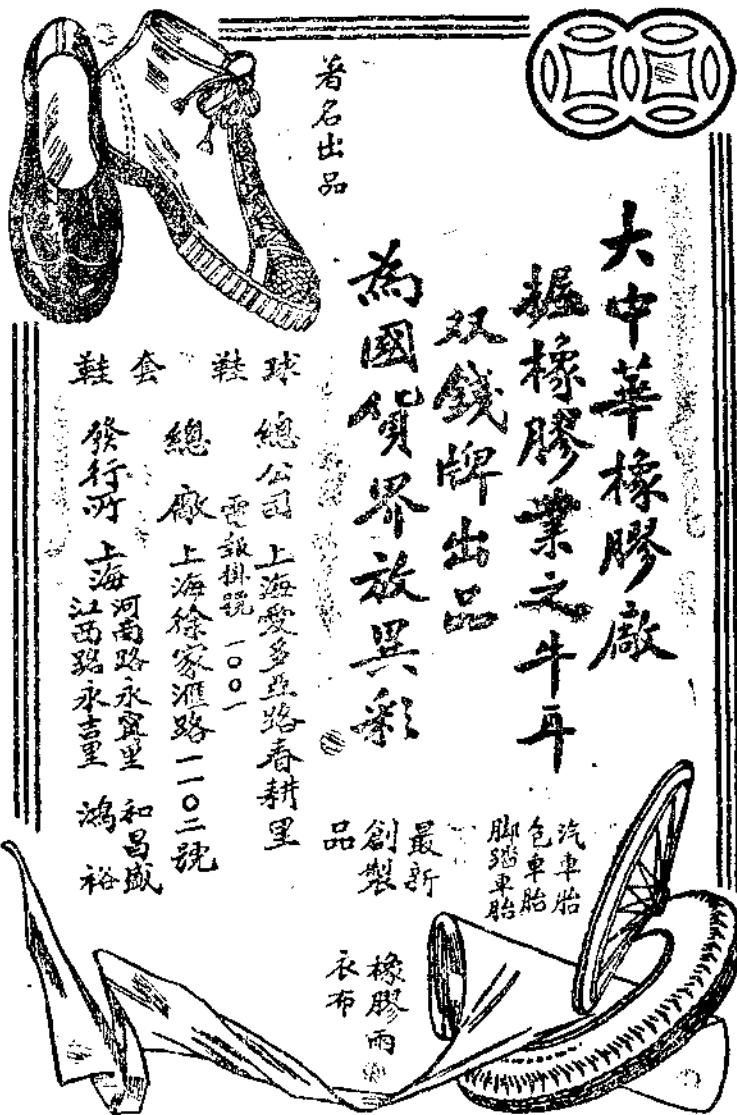 大中華橡膠廠
握橡膠業之牛耳
双錢牌出品
為國貨界放異彩
著名出品
球鞋
套鞋
總公司 上海愛多亞路春耕里
電報掛號 一〇〇一
總廠 上海徐家滙路一一〇二號
發行所 上海
河南路永寗里 和昌盛
江西路永吉里 鴻裕
最新
創製
品
汽車胎
包車胎
脚踏車胎
橡膠雨
衣布